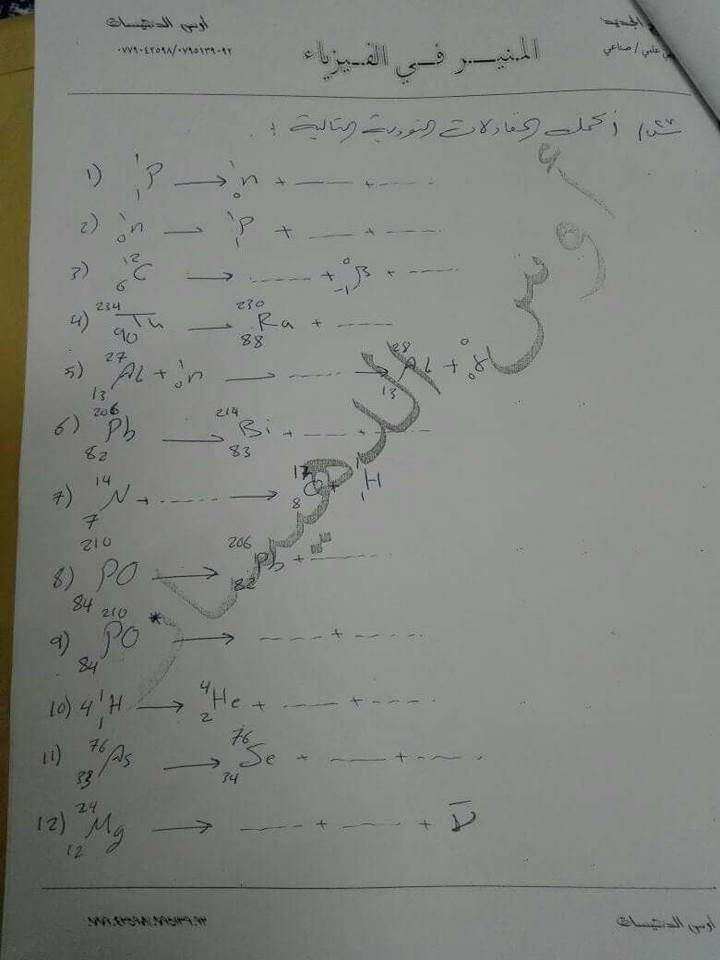 أوس الدنيسات
٠٧٧٩٠٤٢٥٩٨/٠٧٩٥١٣٩٠٩٢
المنير في الفيزياء
علمي / صناعي
أكمل المعادلات النووية التالية :
1) ¹₁P → ¹₀n + ---- + ----
2) ¹₀n → ¹₁P + ---- + ----
3) ¹²₆C → ---- + ⁰₋₁β + ----
4) ²³⁴₉₀Th → ²³⁰₈₈Ra + ----
5) ²⁷₁₃AL + ¹₀n → ---- → ²⁸₁₃AL + ⁰₀γ
6) ²⁰⁶₈₂Pb → ²¹⁴₈₃Bi + ---- + ----
7) ¹⁴₇N + ---- → ¹⁷₈O + ¹₁H
8) ²¹⁰₈₄PO → ²⁰⁶₈₂Pb + ----
9) ²¹⁰₈₄PO* → ---- + ----
10) 4 ¹₁H → ⁴₂He + ---- + ----
11) ⁷⁶₃₃As → ⁷⁶₃₄Se + ---- + ----
12) ²⁴₁₂Mg → ---- + ---- + ν̄
أوس الدنيسات